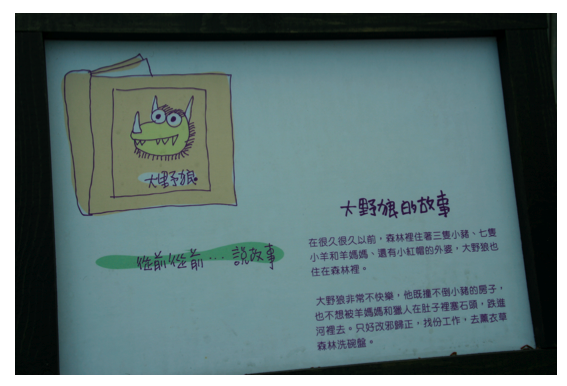 大野狼
從前從前…說故事
大野狼的故事
在很久很久以前，森林裡住著三隻小豬、七隻
小羊和羊媽媽、還有小紅帽的外婆，大野狼也
住在森林裡。
大野狼非常不快樂，他既撞不倒小豬的房子，
也不想被羊媽媽和獵人在肚子裡塞石頭，跌進
河裡去。只好改邪歸正，找份工作，去薰衣草
森林洗碗盤。